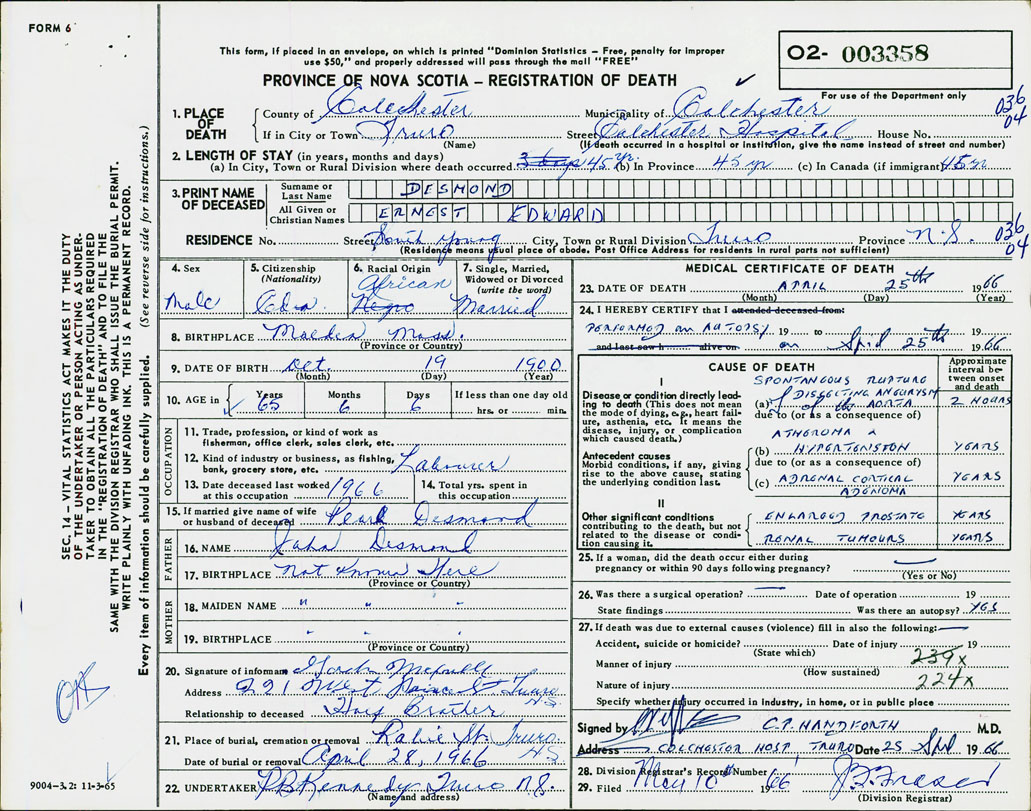 FORM 6
This form, if placed in an envelope, on which is printed "Dominion Statistics – Free, penalty for improper
use $50," and properly addressed will pass through the mail "FREE"
PROVINCE OF NOVA SCOTIA – REGISTRATION OF DEATH
02- 003358
For use of the Department only
036
04
1. PLACE OF DEATH County of Colchester Municipality of Colchester
If in City or Town Truro Street Colchester Hospital House No.
(Name) (If death occurred in a hospital or institution, give the name instead of street and number)
2. LENGTH OF STAY (in years, months and days)
(a) In City, Town or Rural Division where death occurred 3 days 45 yr. (b) In Province 45 yr (c) In Canada (if immigrant) 45 yr
3. PRINT NAME OF DECEASED Surname or Last Name DESMOND
All Given or Christian Names ERNEST EDWARD
RESIDENCE No. Street South Young City, Town or Rural Division Truro Province N.S.
036
04
(Residence means usual place of abode. Post Office Address for residents in rural parts not sufficient)
4. Sex Male
5. Citizenship (Nationality) Cdn.
6. Racial Origin African Negro
7. Single, Married, Widowed or Divorced (write the word) Married
8. BIRTHPLACE Malden Mass.
(Province or Country)
9. DATE OF BIRTH Oct. 19 1900
(Month) (Day) (Year)
10. AGE in Years 65 Months 6 Days 6 If less than one day old hrs. or min.
OCCUPATION
11. Trade, profession, or kind of work as fisherman, office clerk, sales clerk, etc.
12. Kind of industry or business, as fishing, bank, grocery store, etc. Labourer
13. Date deceased last worked at this occupation 1966
14. Total yrs. spent in this occupation
15. If married give name of wife or husband of deceased Pearl Desmond
FATHER
16. NAME John Desmond
17. BIRTHPLACE Not Known Here
(Province or Country)
MOTHER
18. MAIDEN NAME " " "
19. BIRTHPLACE " " "
(Province or Country)
20. Signature of informant
Address 221 West Prince St Truro N.S.
Relationship to deceased Half Brother
21. Place of burial, cremation or removal Robie St. Truro N.S.
Date of burial or removal April 28, 1966
22. UNDERTAKER Kennedy, Truro N.S.
(Name and address)
MEDICAL CERTIFICATE OF DEATH
23. DATE OF DEATH APRIL 25th 1966
(Month) (Day) (Year)
24. I HEREBY CERTIFY that I attended deceased from:
PERFORMED an AUTOPSY 19 to
and last saw h alive on on April 25th 1966
CAUSE OF DEATH
Approximate interval between onset and death
I
Disease or condition directly leading to death (This does not mean the mode of dying, e.g., heart failure, asthenia, etc. It means the disease, injury, or complication which caused death.)
SPONTANEOUS RUPTURE
(a) of DISSECTING ANEURYSM of the AORTA 2 HOURS
due to (or as a consequence of)
Antecedent causes
Morbid conditions, if any, giving rise to the above cause, stating the underlying condition last.
ATHEROMA &
(b) HYPERTENSION YEARS
due to (or as a consequence of)
(c) ADRENAL CORTICAL ADENOMA YEARS
II
Other significant conditions contributing to the death, but not related to the disease or condition causing it.
ENLARGED PROSTATE YEARS
RENAL TUMOURS YEARS
25. If a woman, did the death occur either during pregnancy or within 90 days following pregnancy? —
(Yes or No)
26. Was there a surgical operation? — Date of operation 19
State findings Was there an autopsy? YES
27. If death was due to external causes (violence) fill in also the following: —
Accident, suicide or homicide? Date of injury 19
(State which) 239x
Manner of injury
(How sustained) 224x
Nature of injury
Specify whether injury occurred in industry, in home, or in public place
Signed by C.P. HANDFORTH M.D.
Address COLCHESTER HOSP. TRURO Date 25 April 1966
28. Division Registrar's Record Number
29. Filed May 10 1966 Fraser
(Division Registrar)
SEC. 14 – VITAL STATISTICS ACT MAKES IT THE DUTY
OF THE UNDERTAKER OR PERSON ACTING AS UNDER-
TAKER TO OBTAIN ALL THE PARTICULARS REQUIRED
IN THE "REGISTRATION OF DEATH" AND TO FILE THE
SAME WITH THE DIVISION REGISTRAR WHO SHALL ISSUE THE BURIAL PERMIT.
WRITE PLAINLY WITH UNFADING INK. THIS IS A PERMANENT RECORD.
Every item of information should be carefully supplied. (See reverse side for instructions.)
OK
9004–3.2: 11-3-65